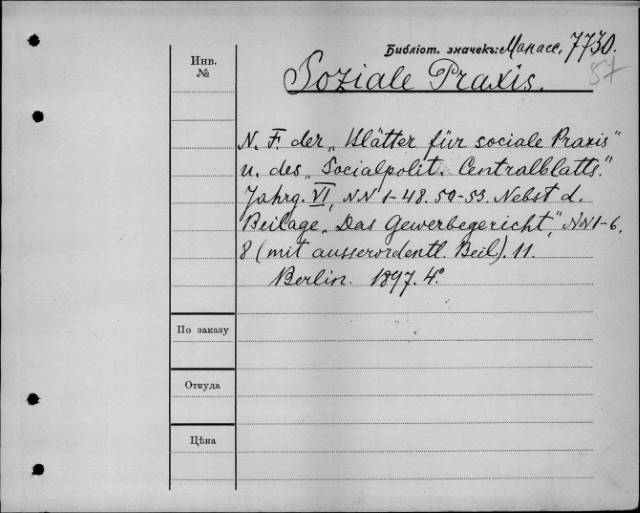 Библіот. значекъ: Манасс. 7730.
57
Инв.
№
Soziale Praxis.
N. F. der „Blätter für sociale Praxis"
u. des „Socialpolit. Centralblatts."
Jahrg. VI, NN 1-48. 50-53. Nebst d.
Beilage „Das Gewerbegericht", NN 1-6,
8 (mit ausserordentl. Beil). 11.
Berlin. 1897. 4°.
По заказу
Откуда
Цѣна